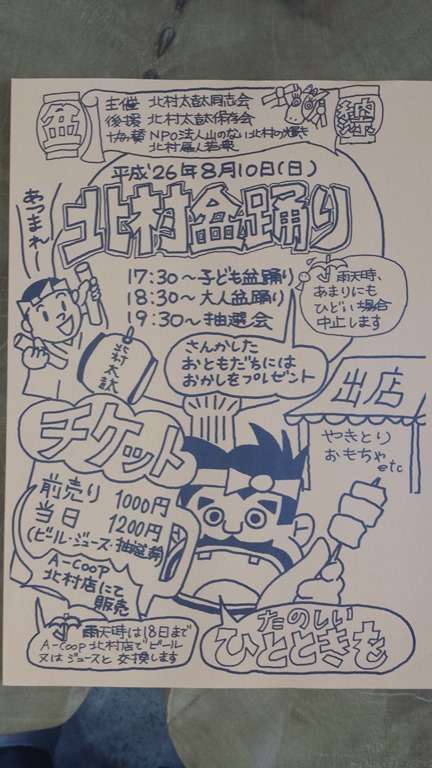 盆
納涼
主催 北村太鼓同志会
後援 北村太鼓保存会
協賛 NPO法人山のない北村の輝き
北村屬人若衆
平成26年8月10日(日)
あつまれ〜
北村盆踊り
17:30〜子ども盆踊り
18:30〜大人盆踊り
19:30〜抽選会
雨天時、
あまりにも
ひどい場合
中止します
さんかした
おともだちには
おかしをプレゼント
北村太鼓
出店
やきとり
おもちゃ
etc
チケット
前売り 1000円
当日 1200円
(ビール・ジュース・抽選券)
A-COOP
北村店にて
販売
雨天時は18日まで
A-Coop 北村店でビール
又はジュースと交換します
たのしい
ひとときを